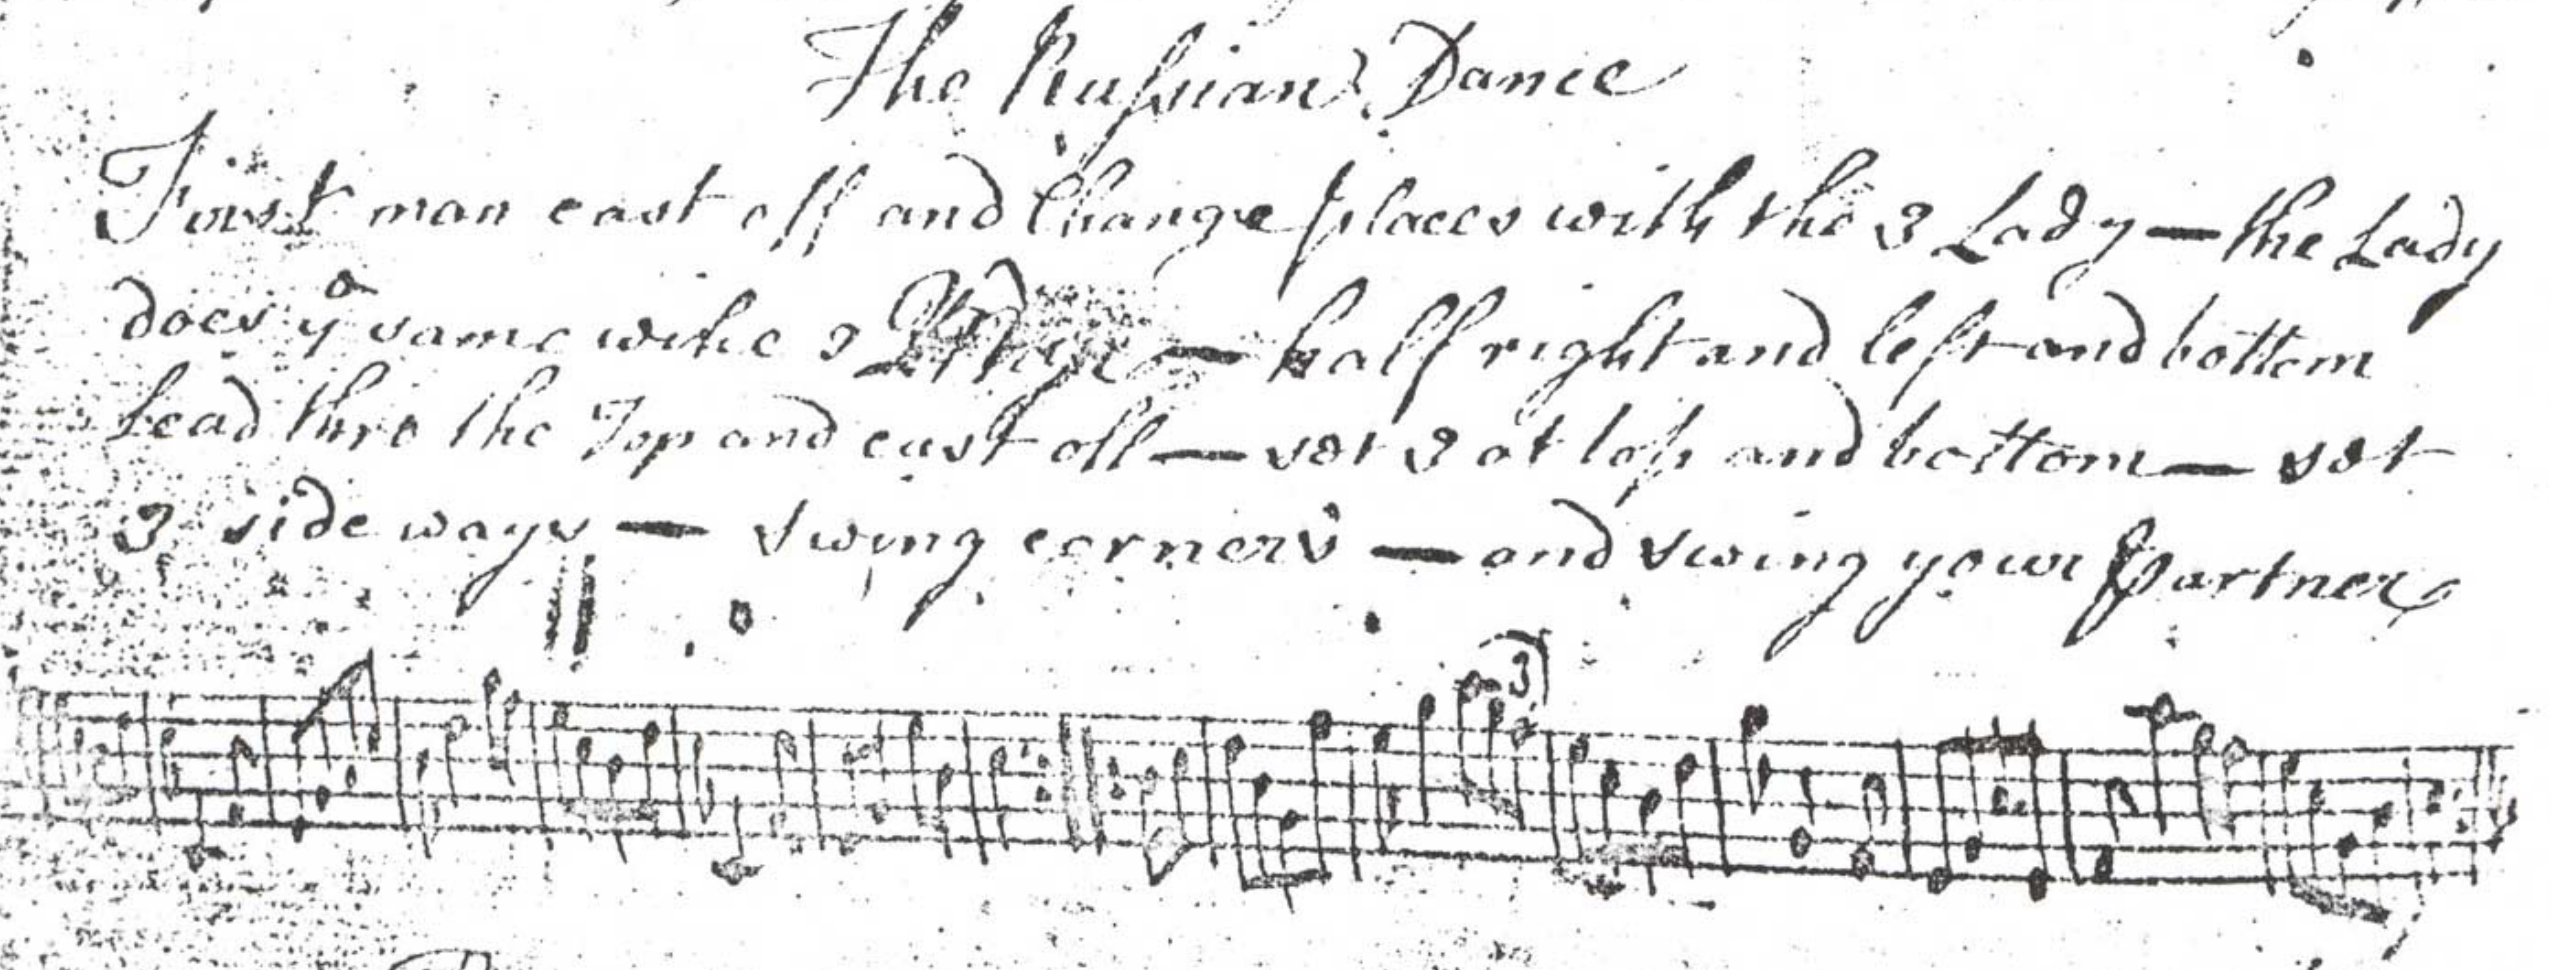 The Rufsian Dance
First man cast off and Change places with the 3 Lady — the Lady
does yᵉ same withe 3 — half right and left and bottom
Lead thro the Top and cast off — set 3 at top and bottom — set
3 side ways — swing corners — and swing your Partner
3